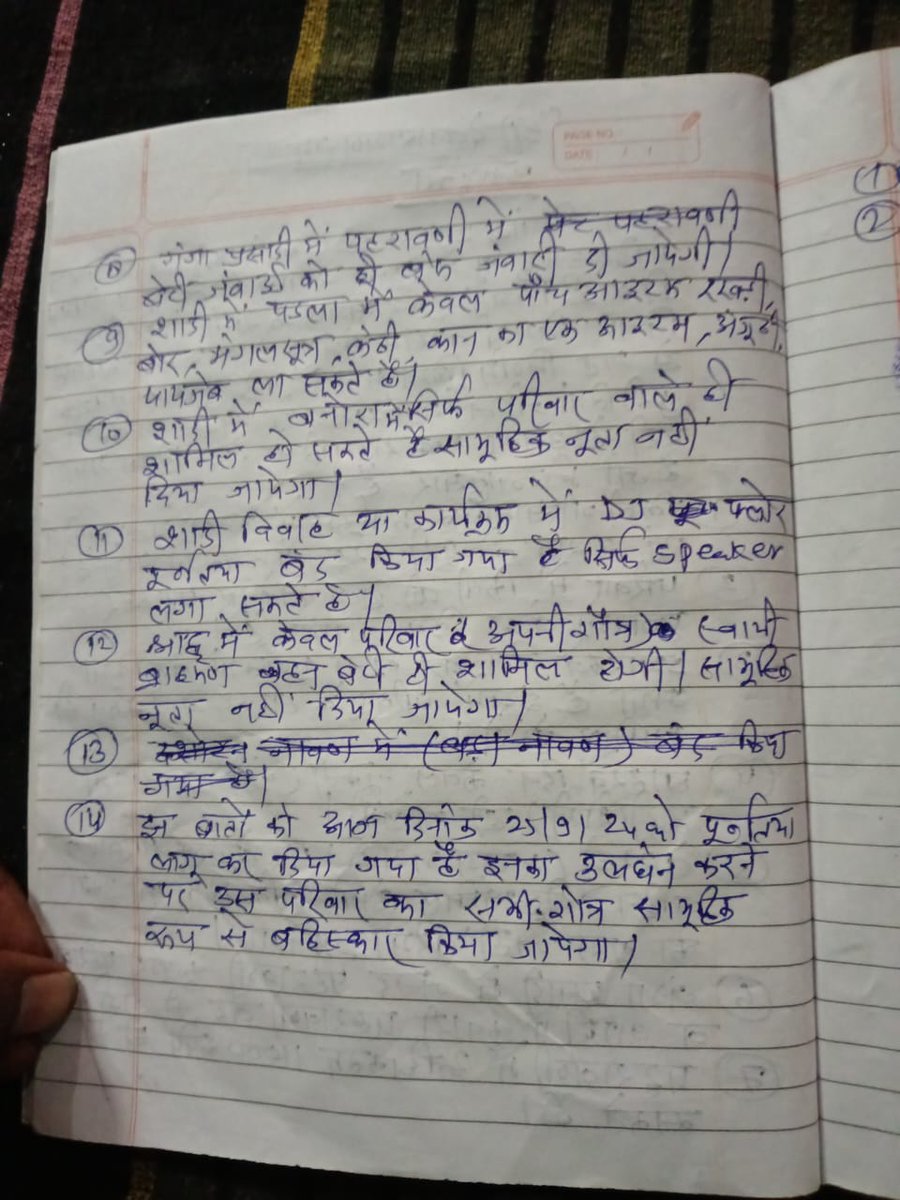 PAGE NO.
DATE: / /
गंगा प्रसादी में पहरावणी में पहरावणी
बेटी जंवाई को ही जंवारी दी जायेगी।
(9) शादी में पडला में केवल पाँच आइटम रखडी,
बोर, मंगलसूत्र, कंठी, कान का एक आइटम, अंगूठी,
पायजेब ला सकते है।
(10) शादी में सिर्फ परिवार वाले ही
शामिल हो सकते है सामूहिक नूता नही
दिया जायेगा।
(11) शादी विवाह या कार्यक्रम में DJ फ्लोर
पूर्णतया बंद किया गया है सिर्फ speaker
लगा सकते है।
(12) श्राद्ध में केवल परिवार (अपनी गौत्र) स्वामी
ब्राहमण बहन बेटी ही शामिल होगी। सामूहिक
नूता नही दिया जायेगा।
(13) नावण में नावण) बंद किया
गया है।
(14) इन बातो को आज दिनांक 25/9/24 को पूर्णतिया
लागू कर दिया गया है इनका उलघंन करने
पर उस परिवार का सभी गौत्र सामूहिक
रूप से बहिस्कार किया जायेगा।
(1)
(2)